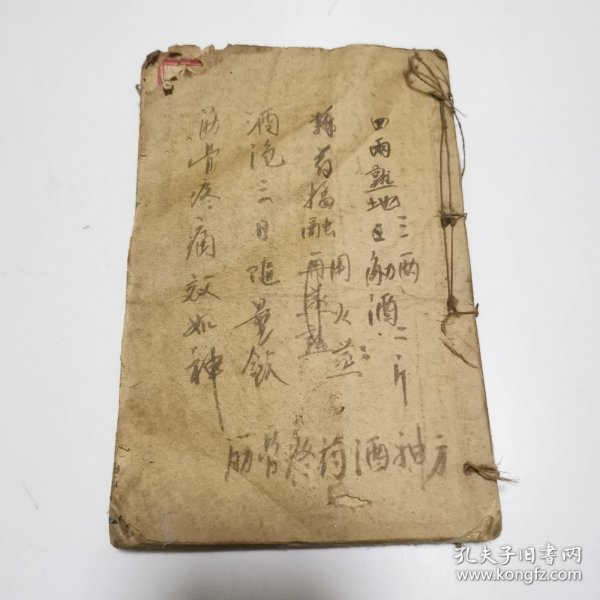 四两熟地 白 酒
三两 二斤
将药搗融
用火蒸
酒泡三日随量飲
筋骨疼痛效如神
方神酒药疼骨筋
孔夫子旧书网
www.kongfz.com